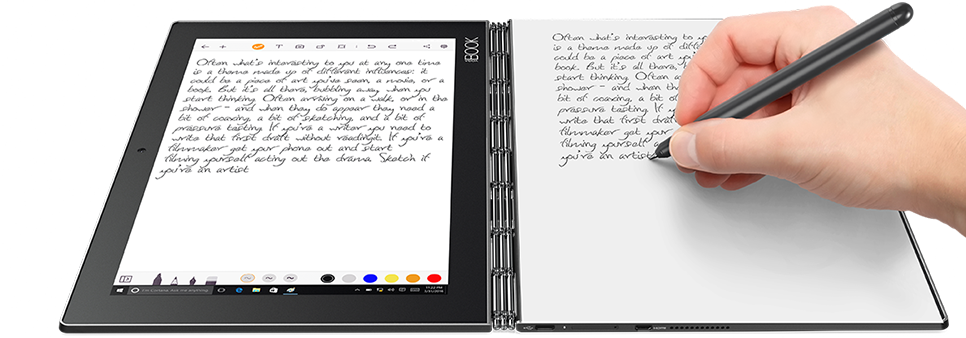 BOOK
Often what's interesting to you at any one time
is a theme made up of different influences: it
could be a piece of art you've seen, a movie, or a
book. But it's all there, bubbling away when you
start thinking. Often arriving on a walk, or in the
shower - and when they do appear they need a
bit of coaxing, a bit of sketching, and a bit of
pressure testing. If you're a writer you need to
write that first draft without readingit. If you're a
filmmaker get your phone out and start
filming yourself acting out the drama. Sketch if
you're an artist
I'm Cortana. Ask me anything.
11:22 PM
Often what's interesting to you
is a theme made up of
could be a piece of art
book. But it's all there
start thinking. Often
shower - and when
bit of coaxing, a bit
pressure testing. If
write that first
filmmaker get your
filming yourself
you're an artist
HDMI